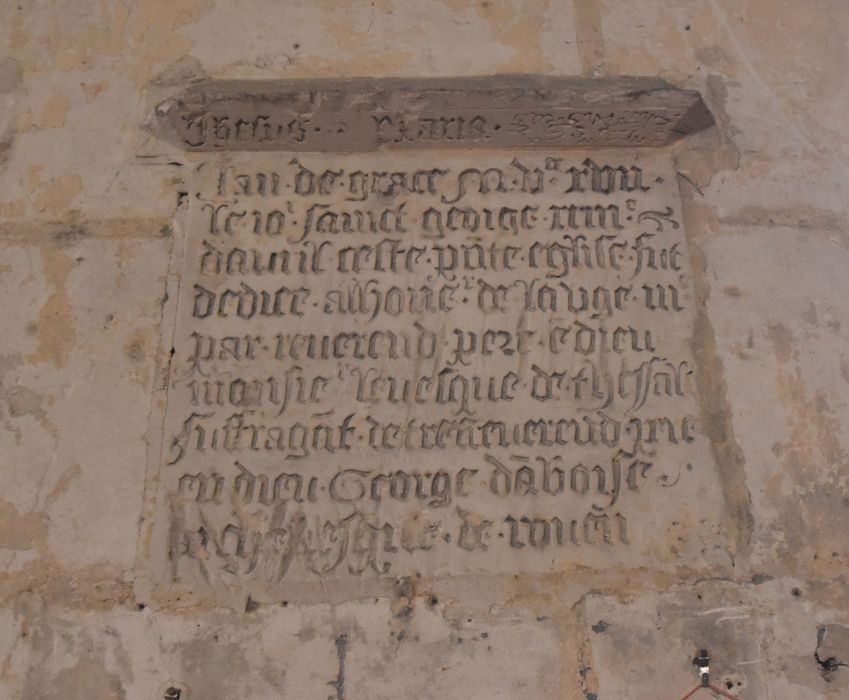 Ihesus · Maria ·
Lan · de · grace · M · vᶜ xviii ·
le ioʳ sainct george xxiiiᵉ
davril ceste · pn̄te · eglise · fut
dedice · a lhoneʳ · de la vge · m
par · reverend · pere · e dieu
monsieʳ levesque · de · thessal
suffragāt · de treˢ reverend pere
en dieu · George dāboise
archevesque · de · rouen